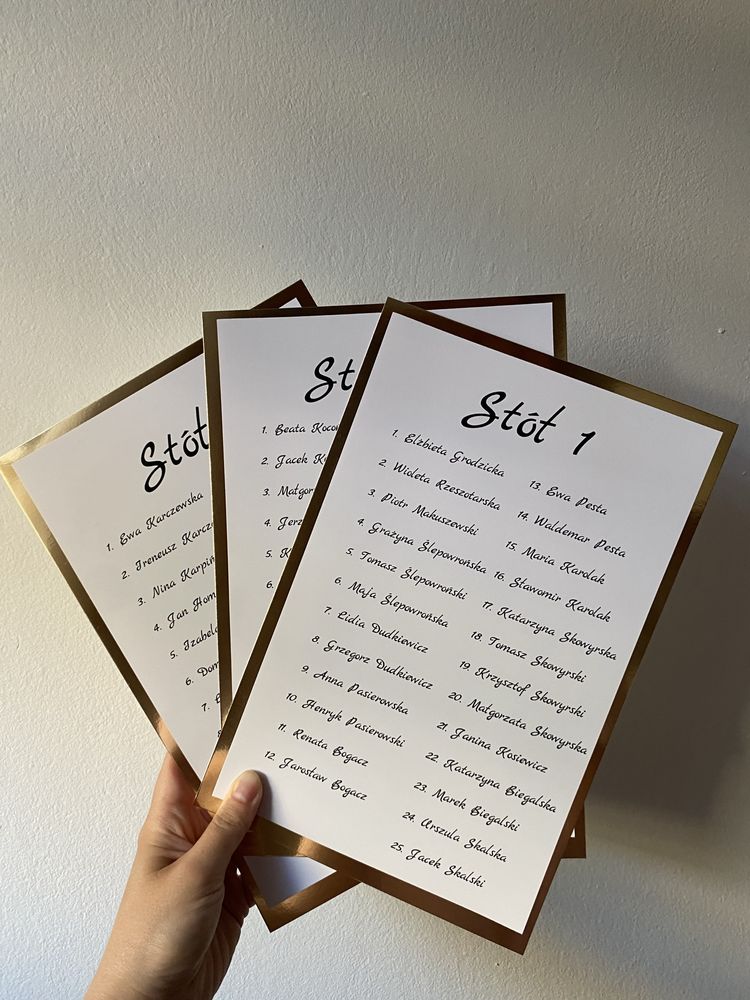 Stół
1. Ewa Karczewska
2. Ireneusz
3. Nina
4. Jan
5.
6.
7.
1. Beata
2. Jacek
3.
4.
5.
6.
Stół 1
1. Elżbieta Grodzicka
2. Wioleta Rzeszotarska
3. Piotr Makuszewski
4. Grażyna Ślepowrońska
5. Tomasz Ślepowroński
6. Maja Ślepowrońska
7. Lidia Dudkiewicz
8. Grzegorz Dudkiewicz
9. Anna Pasierowska
10. Henryk Pasierowski
11. Renata Bogacz
12. Jarosław Bogacz
13. Ewa Pesta
14. Waldemar Pesta
15. Maria Karolak
16. Sławomir Karolak
17. Katarzyna Skowyrska
18. Tomasz Skowyrski
19. Krzysztof Skowyrski
20. Małgorzata Skowyrska
21. Janina Kosiewicz
22. Katarzyna Biegalska
23. Marek Biegalski
24. Urszula Skalska
25. Jacek Skalski